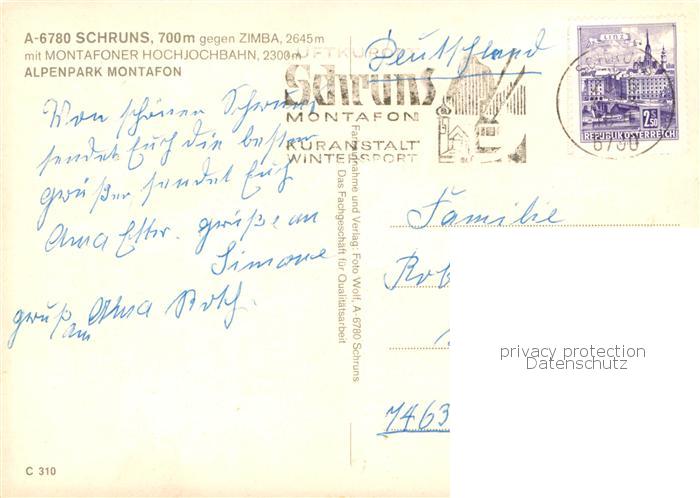 A-6780 SCHRUNS, 700m gegen ZIMBA, 2645m
mit MONTAFONER HOCHJOCHBAHN, 2300m
ALPENPARK MONTAFON
Von schönen Schruns
sendet Euch die besten
Grüße sendet Euch
Oma Ester. grüße an
Simone
gruß Oma Roth.
an
C 310
Farbaufnahme und Verlag: Foto Wolf, A-6780 Schruns
Das Fachgeschäft für Qualitätsarbeit
LUFTKURORT
Schruns
MONTAFON
KURANSTALT
WINTERSPORT
Deutschland
LINZ
2.50
REPUBLIK ÖSTERREICH
Familie
7463
privacy protection
Datenschutz